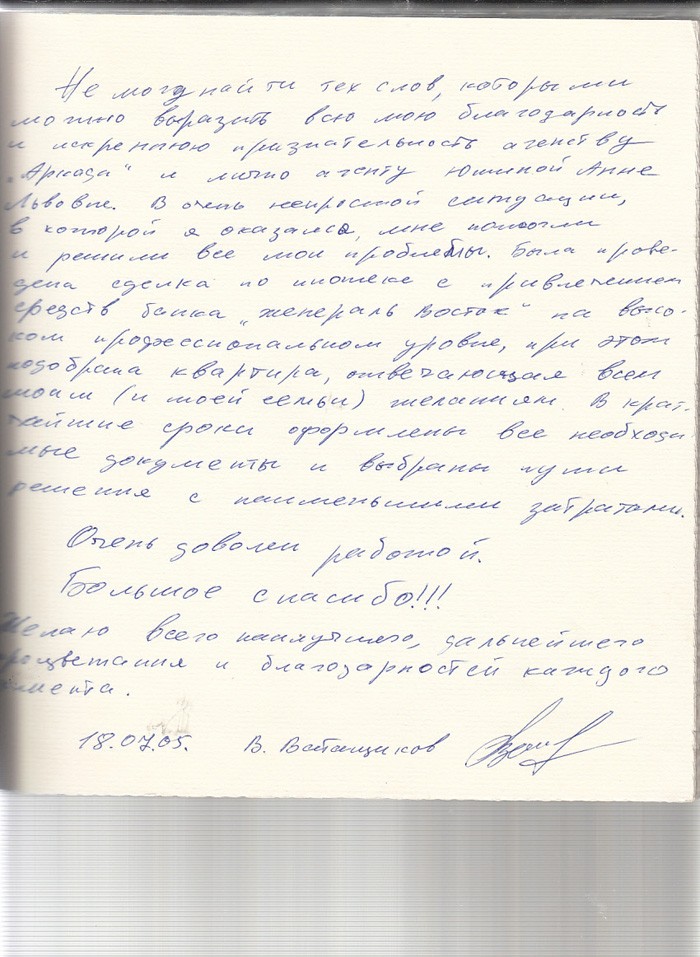 Не могу найти тех слов, которыми
можно выразить всю мою благодарность
и искреннюю признательность агенству
„Аркада“ и лично агенту Юшиной Анне
Львовне. В очень непростой ситуации,
в которой я оказался, мне помогли
и решили все мои проблемы. Была прове-
дена сделка по ипотеке с привлечением
средств банка „Женераль Восток“ на высо-
ком профессиональном уровне, при этом
подобрана квартира, отвечающая всем
моим (и моей семьи) желаниям. В крат-
чайшие сроки оформлены все необходи
мые документы и выбраны пути
решения с наименьшими затратами.
Очень доволен работой.
Большое спасибо!!!
Желаю всего наилучшего, дальнейшего
процветания и благодарностей каждого
клиента.
18.07.05. В. Ватанщиков